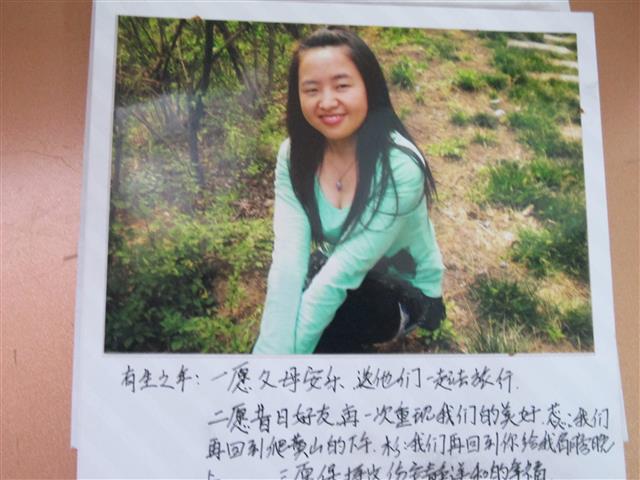 有生之年：一愿父母安乐.送他们一起去旅行.
二愿昔日好友,再一次重现我们的美好.蕊:我们
再回到爬黄山的下午.水:我们再回到你给我 晚
上 三愿保持这份安静 和的幸福